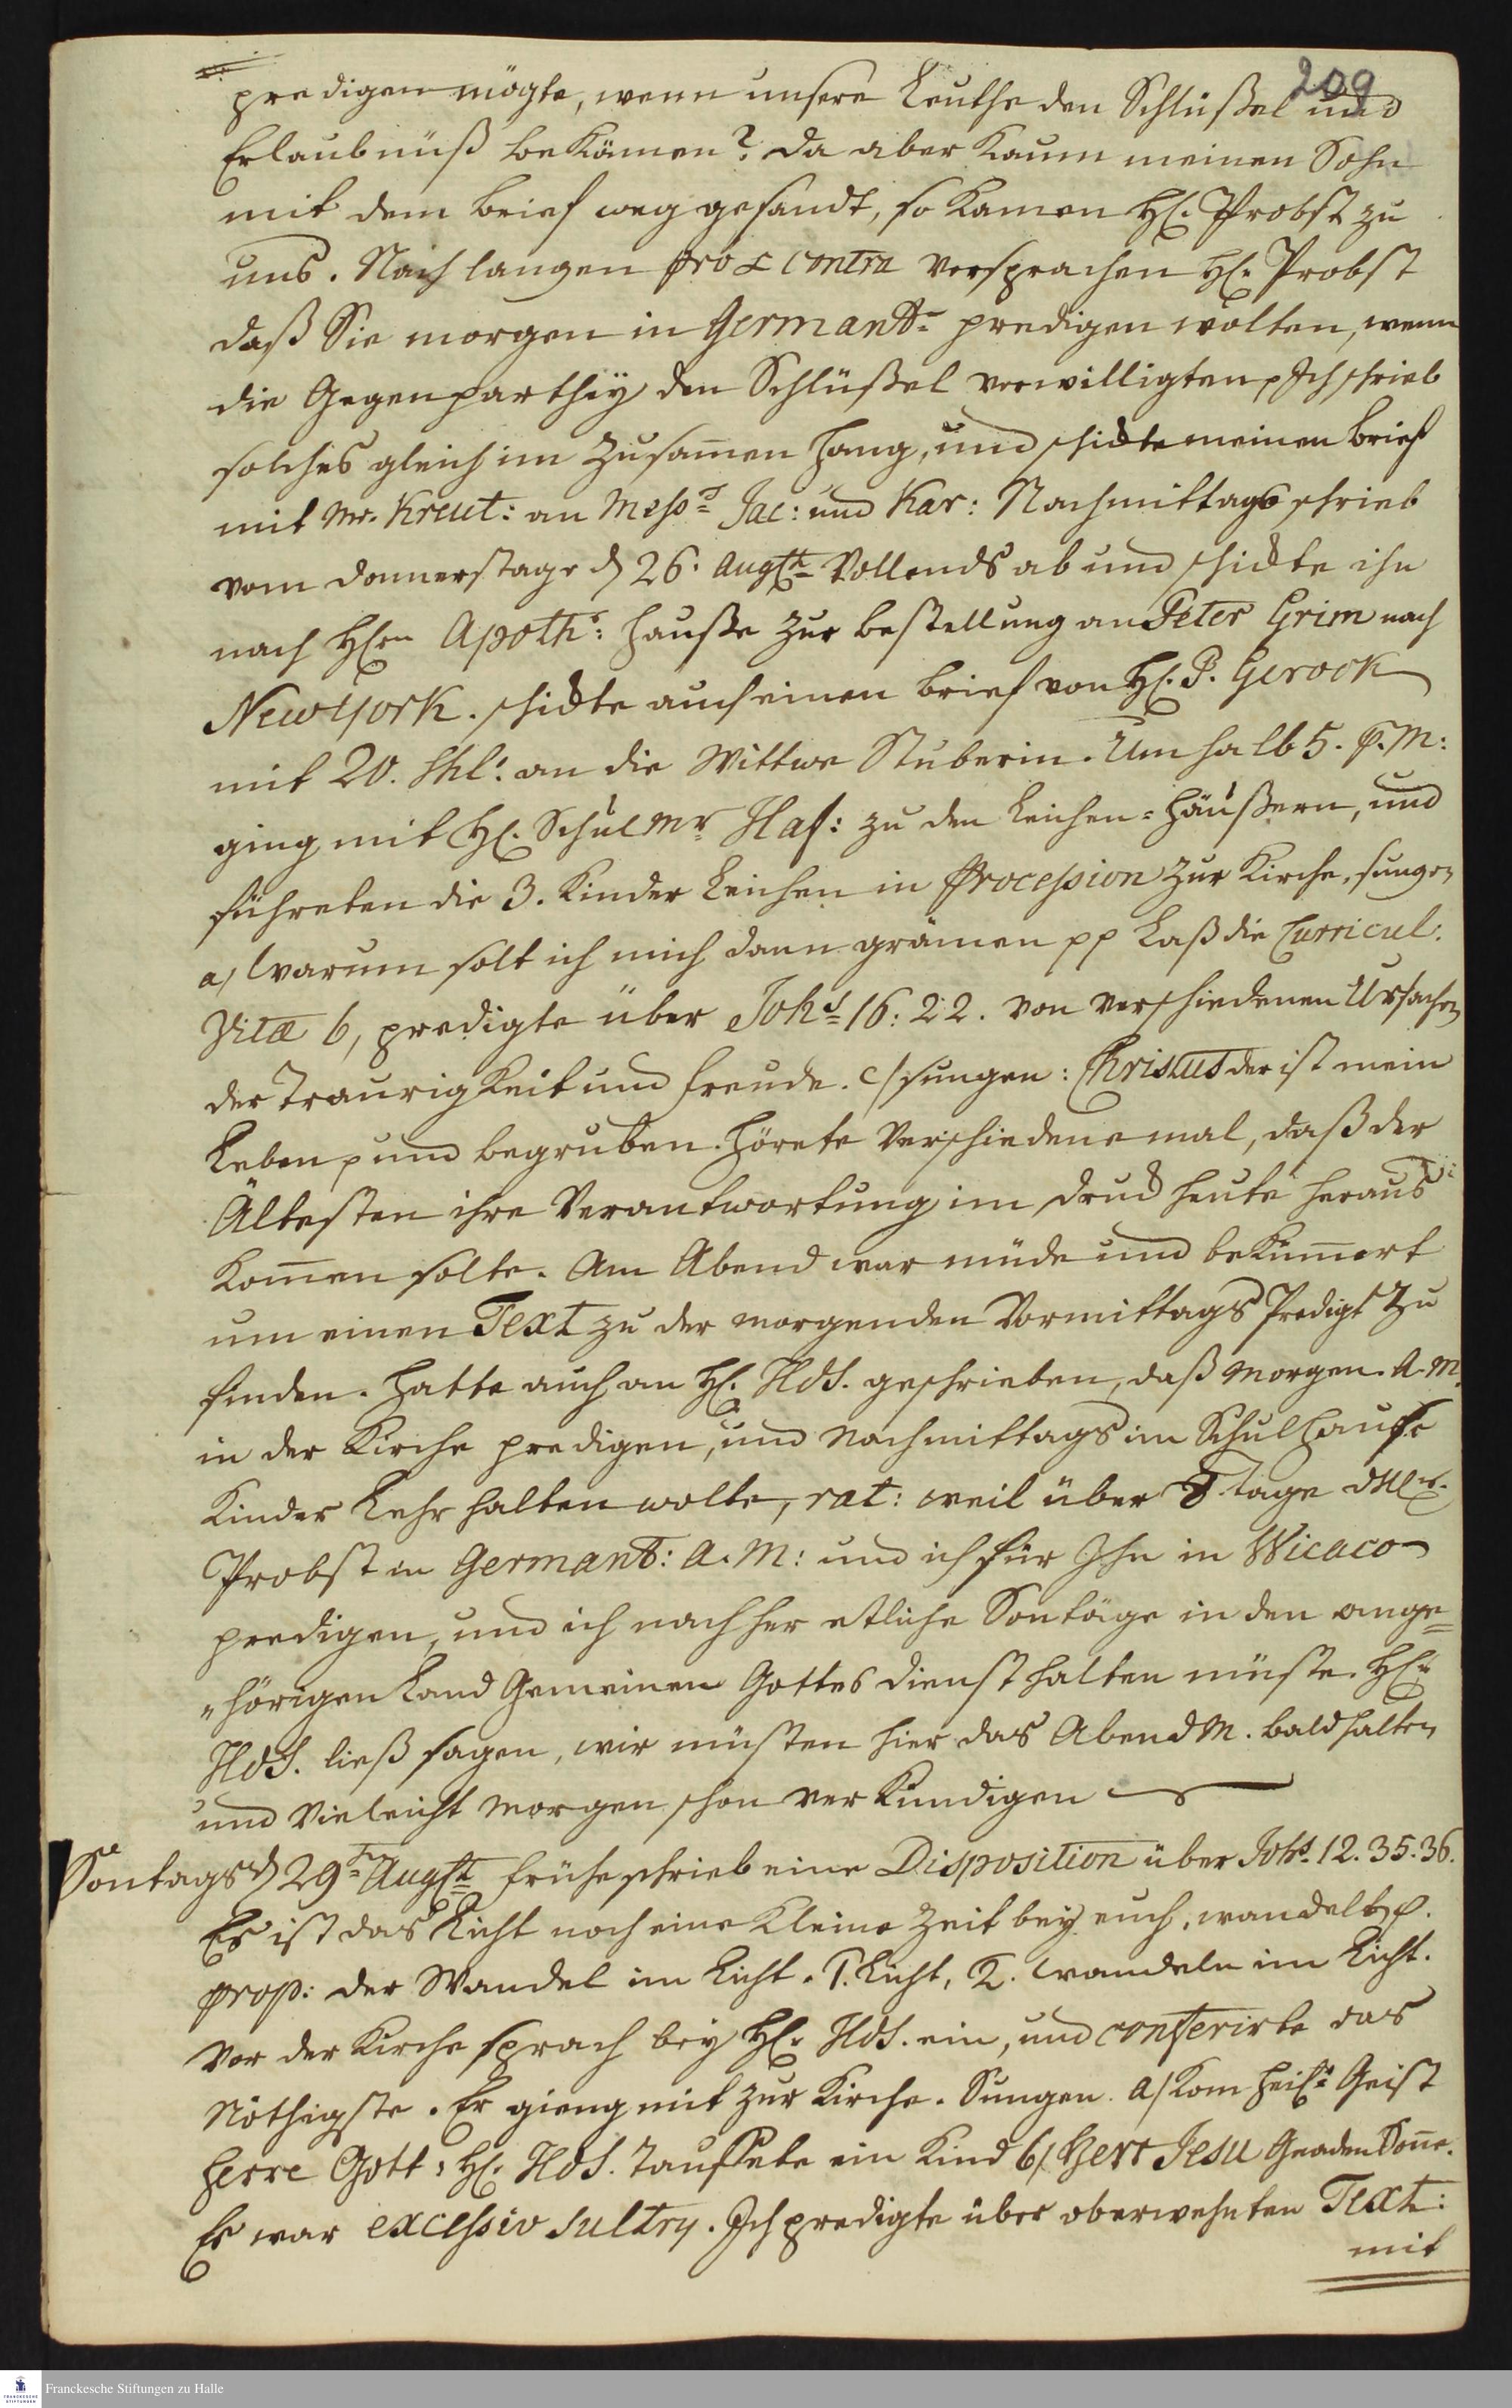 209
predigen mögte, wenn unsere Leuthe den Schlüßel und
Erlaubnüß bekämen? Da aber kaum meinen Sohn
mit dem brief weg gesandt, so kamen H. Probst zu
uns. Nach langen pro & contra versprachen H. Probst
daß Sie morgen in Germant= predigen wolten, wenn
die Gegenparthey den Schlüßel verwilligten p Ich schrieb
solches gleich im Zusam̅en hang, und schickte meinen brief
mit Mr. Kreut: an Mess= Jac: und Kar: Nachmittags schrieb
vom donnerstage d 26. Augst= Vollends ab und schickte ihn
nach Hrn Apoth: Hauße zur bestellung an Peter Grim nach
Newyork. schickte auch einen brief von H. P. Gerock
mit 20. Shl: an die Wittwe Stuberin. Um halb 5. p. M:
ging mit H. Schulmr Haf: zu den Leichen=Häußern, und
führeten die 3. Kinder Leichen in Procession zur Kirche, sungen
a/ Warum solt ich mich dann grämen pp Laß die Curricul.
Vitæ b, predigte über Johs 16: 22. von verschiedenen Ursachen
der Traurigkeit und freude. c/ sungen: Christus der ist mein
Leben p und begruben. Hörete verschiedene mal, daß der
Ältesten ihre Verantwortung im druck heute heraus
kom̅en solte. Am Abend war müde und beküm̅ert
um einen Text zu der morgenden Vormittags Predigt zu
finden. Hatte auch an H. Hds. geschrieben, daß morgen A. M.
in der Kirche predigen, und nachmittags im Schulhause
Kinder Lehr halten wolte, rat: weil über 8 tage
Probst in Germant: A. M: und ich für Ihn in Wicaco
predigen, und ich nach her etliche Sontäge in den ange=
"hörigen Land Gemeinen Gottes dienst halten müste. H.
Hds. ließ sagen, wir müsten hier das Abend M. bald halten
und vieleicht morgen schon verkündigen
Sontags d 29= Augst= frühe schrieb eine Disposition über Johs. 12. 35. 36.
Es ist das Licht noch eine kleine Zeit bey euch, wandelt p.
prop: der Wandel im Licht. 1. Licht, 2. wandeln im Licht.
Vor der Kirche sprach bey H. Hds. ein, und conferirte das
Nöthigste. Er gieng mit zur Kirche. Sungen a/ Kom heil: Geist
Herre Gott: H. Hds. tauffete ein Kind b/ Herr Jesu Gnaden Son̅e.
Es war excessiv sultry. Ich predigte über oberwehnten Text:
mit
Franckesche Stiftungen zu Halle